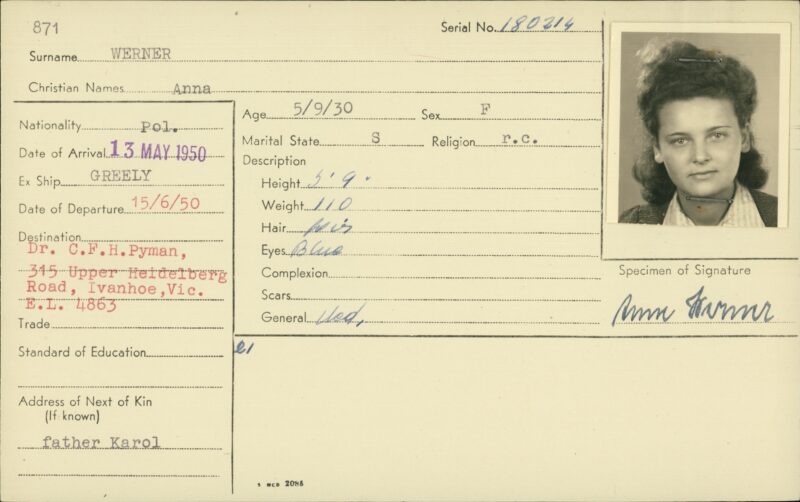 871
Serial No. 180214
Surname WERNER
Christian Names Anna
Nationality Pol.
Date of Arrival 13 MAY 1950
Ex Ship GREELY
Date of Departure 15/6/50
Destination
Dr. C.F.H.Pyman,
315 Upper Heidelberg
Road, Ivanhoe,Vic.
E.L. 4863
Trade
Standard of Education
Address of Next of Kin
(If known)
father Karol
Age 5/9/30 Sex F
Marital State S Religion r.c.
Description
Height 5' 9.
Weight 110
Hair
Eyes Blue
Complexion
Scars
General Med,
Specimen of Signature
Anna Werner